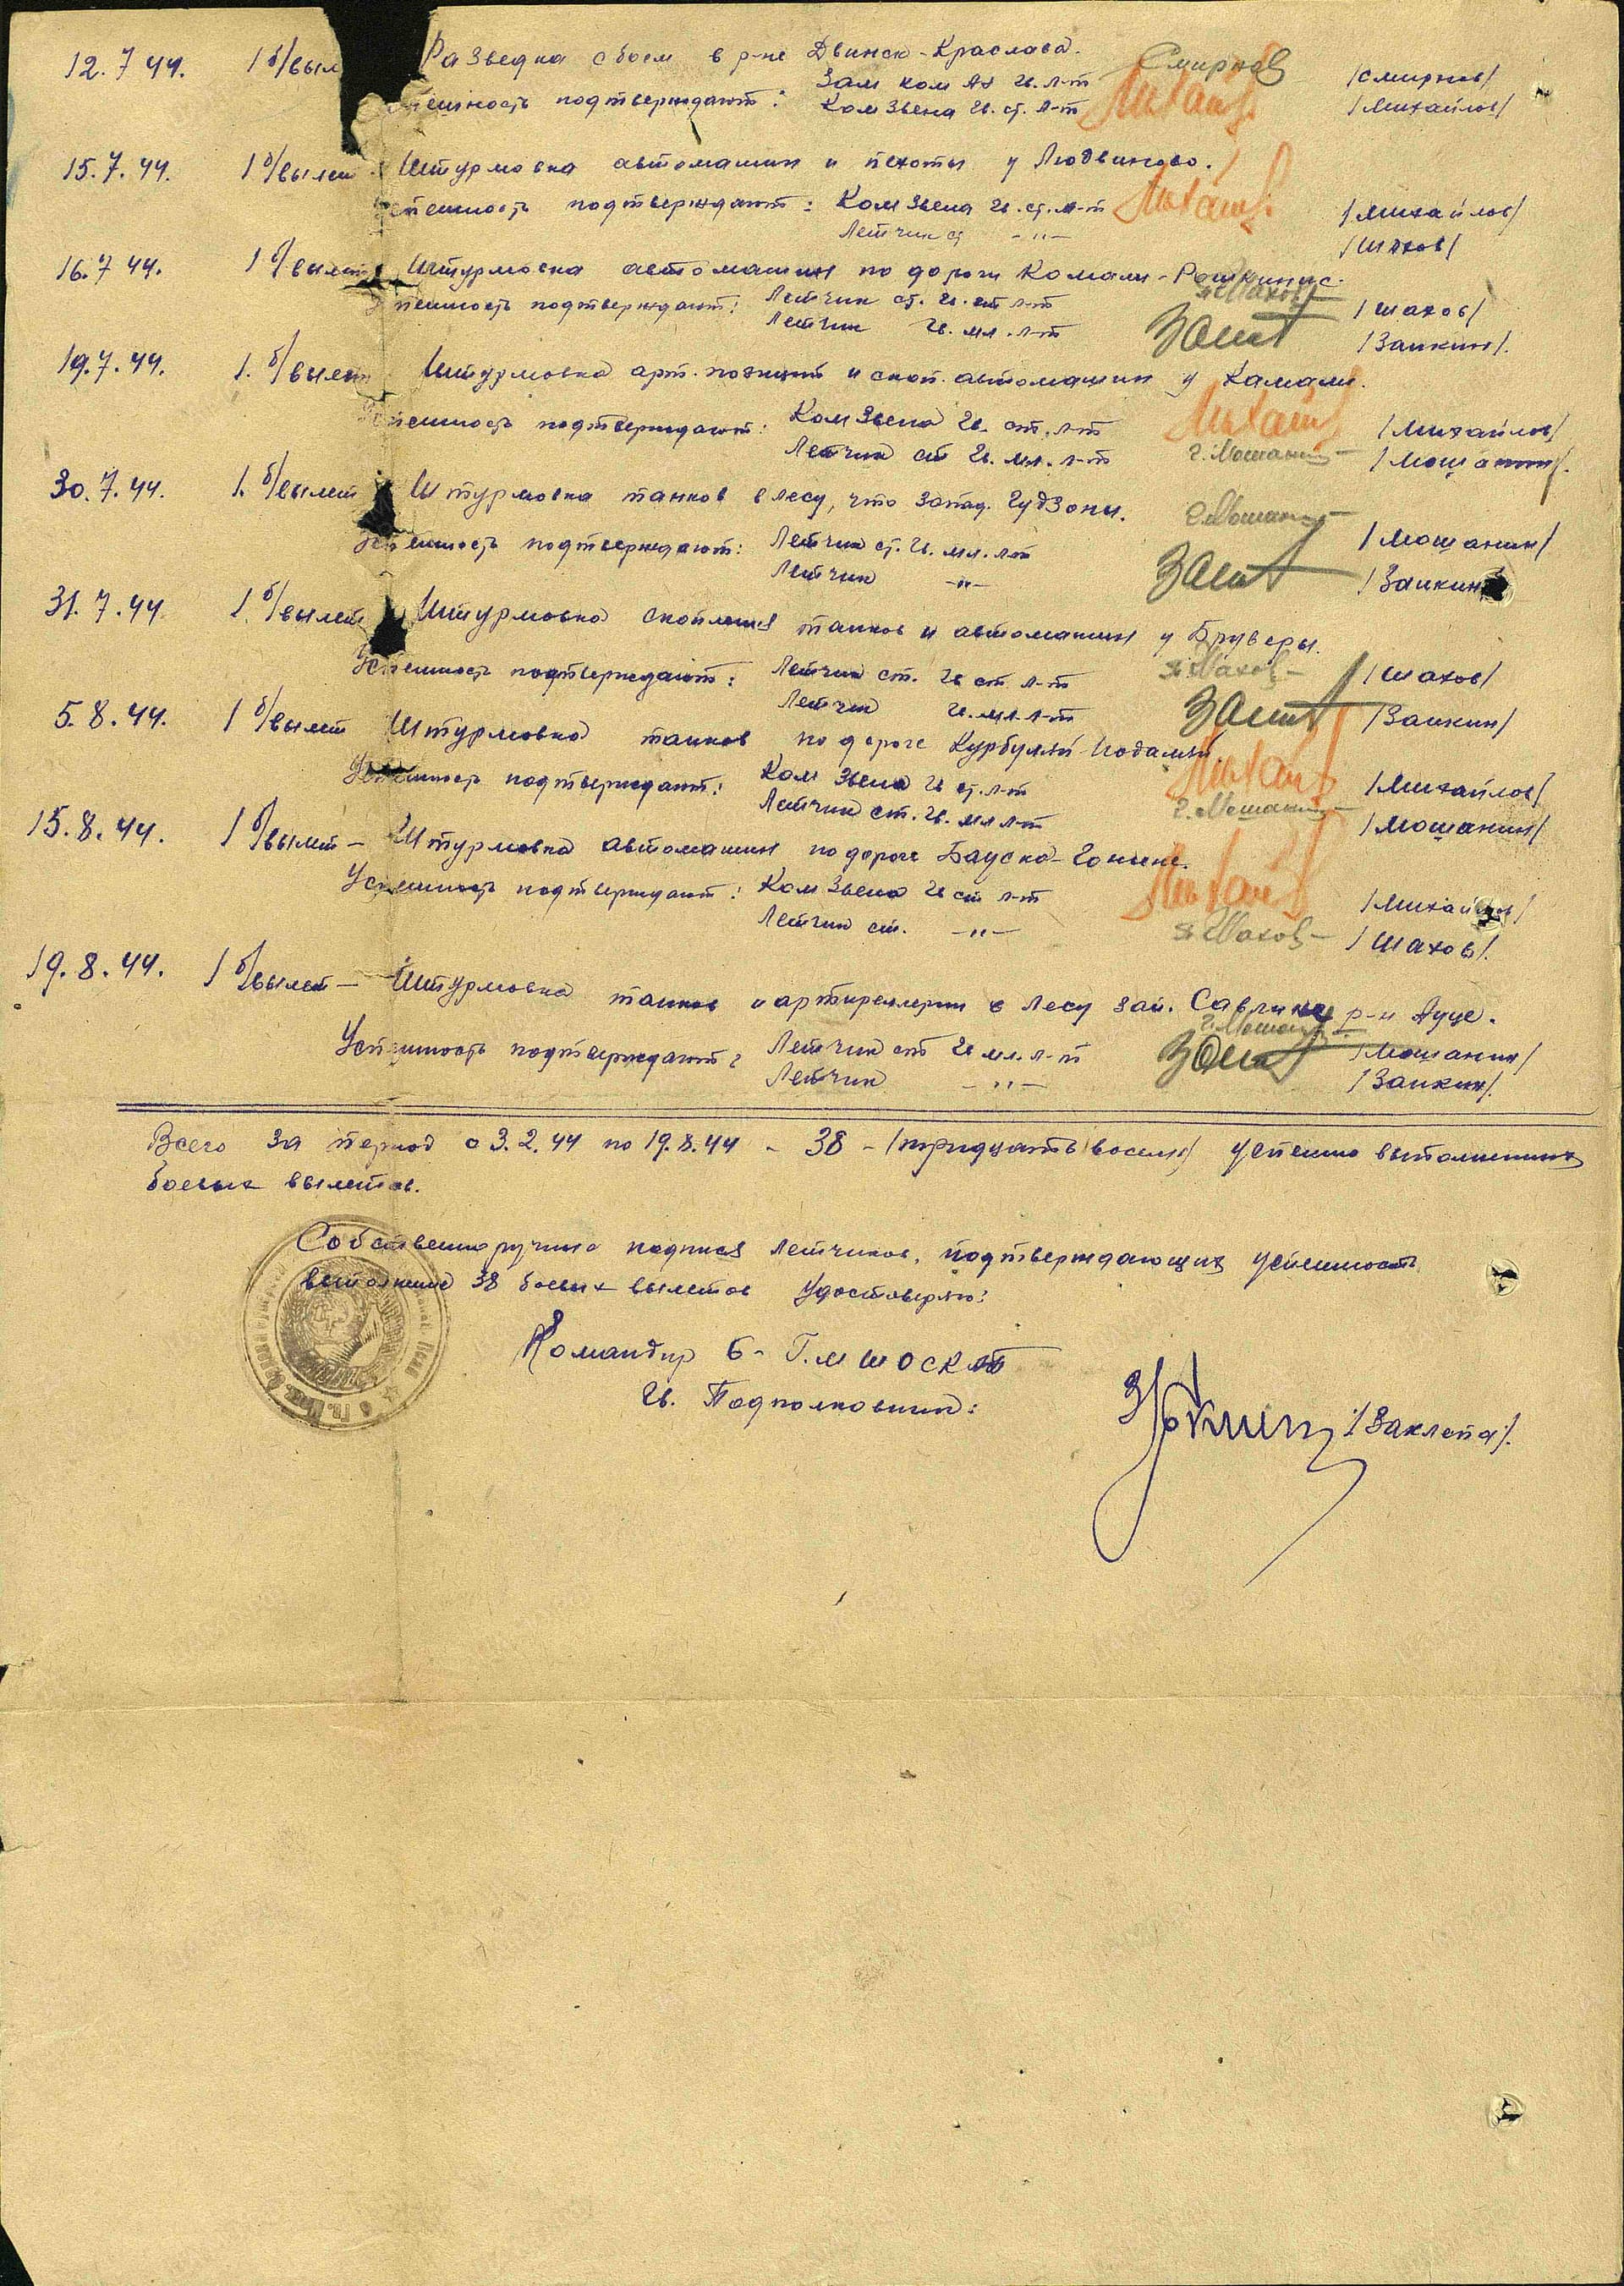 12.7.44. 1 б/выл Разведка с боем в р-не Двинск-Краслава.
Смирнов
Зам ком АЭ гв. л-т /Смирнов/
пешность подтверждают: Ком Звена гв. ст. л-т /Михайлов/
15.7.44. 1 б/вылет Штурмовка автомашин и пехоты у Людвиново.
пешность подтверждают: Ком Звена гв. ст. л-т /Михайлов/
Летчик ст -"- /Шахов/
16.7.44. 1 б/вылет Штурмовка автомашин по дороги Комали-
Шахов
пешность подтверждают: Летчик ст. гв. ст л-т /Шахов/
Летчик гв. мл. л-т /Заикин/.
19.7.44. 1. б/вылет Штурмовка арт. позиций и скоп. автомашин у Камали.
пешность подтверждают: Ком Звена гв. ст. л-т /Михайлов/
Летчик ст гв. мл. л-т Г. Мошанин /Мошанин/.
30.7.44. 1. б/вылет Штурмовка танков в лесу, что запад. Гудзоны.
Г. Мошанин
Успешность подтверждают: Летчик ст. гв. мл. л-т /Мошанин/
Летчик -"- /Заикин
31.7.44 1. б/вылет Штурмовка скопления танков и автомашин у Бруверы.
Шахов
Успешность подтверждают: Летчик ст. гв ст л-т /Шахов/
Летчик гв. мл. л-т /Заикин/
5.8.44. 1 б/вылет Штурмовка танков по дороге
Успешность подтверждают: Ком Звена гв ст. л-т /Михайлов/
Летчик ст. гв. мл л-т Г. Мошанин /Мошанин/
15.8.44. 1 б/вылет - Штурмовка автомашин по дороге Бауска-
Успешность подтверждают: Ком Звена гв ст л-т /Михайлов/
Летчик ст. -"- Шахов /Шахов/.
19.8.44. 1 б/вылет - Штурмовка танков и артиреллерии в лесу зап. р-н Ауце.
Г. Мошанин
Успешность подтверждают: Летчик ст гв мл. л-т /Мошанин/
Летчик -"- /Заикин/.
Всего за период с 3.2.44 по 19.8.44 - 38 - /тридцать восемь/ успешно выполненных
боевых вылетов.
Собственноручные подписи летчиков, подтверждающих успешность
выполнение 38 боевых вылетов удостоверяю:
Командир 6- Г.М ШОСКАП
Гв. Подполковник: /Заклепа/.